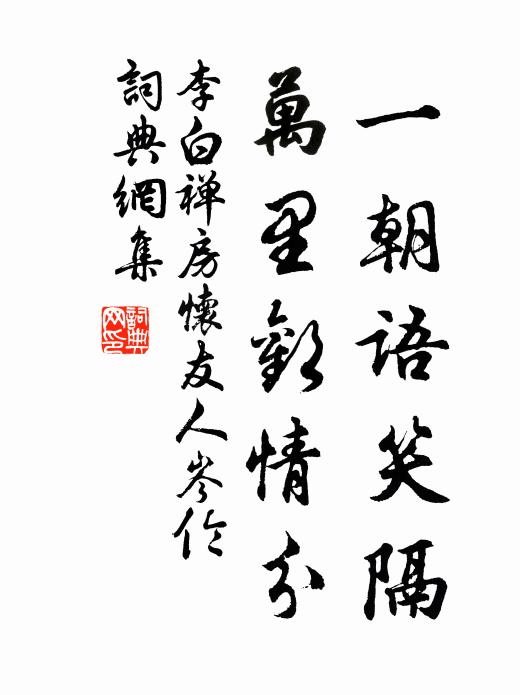 一朝語笑隔
萬里歡情分
李白禅房懷友人岑倫
詞典網集
詞典
网印